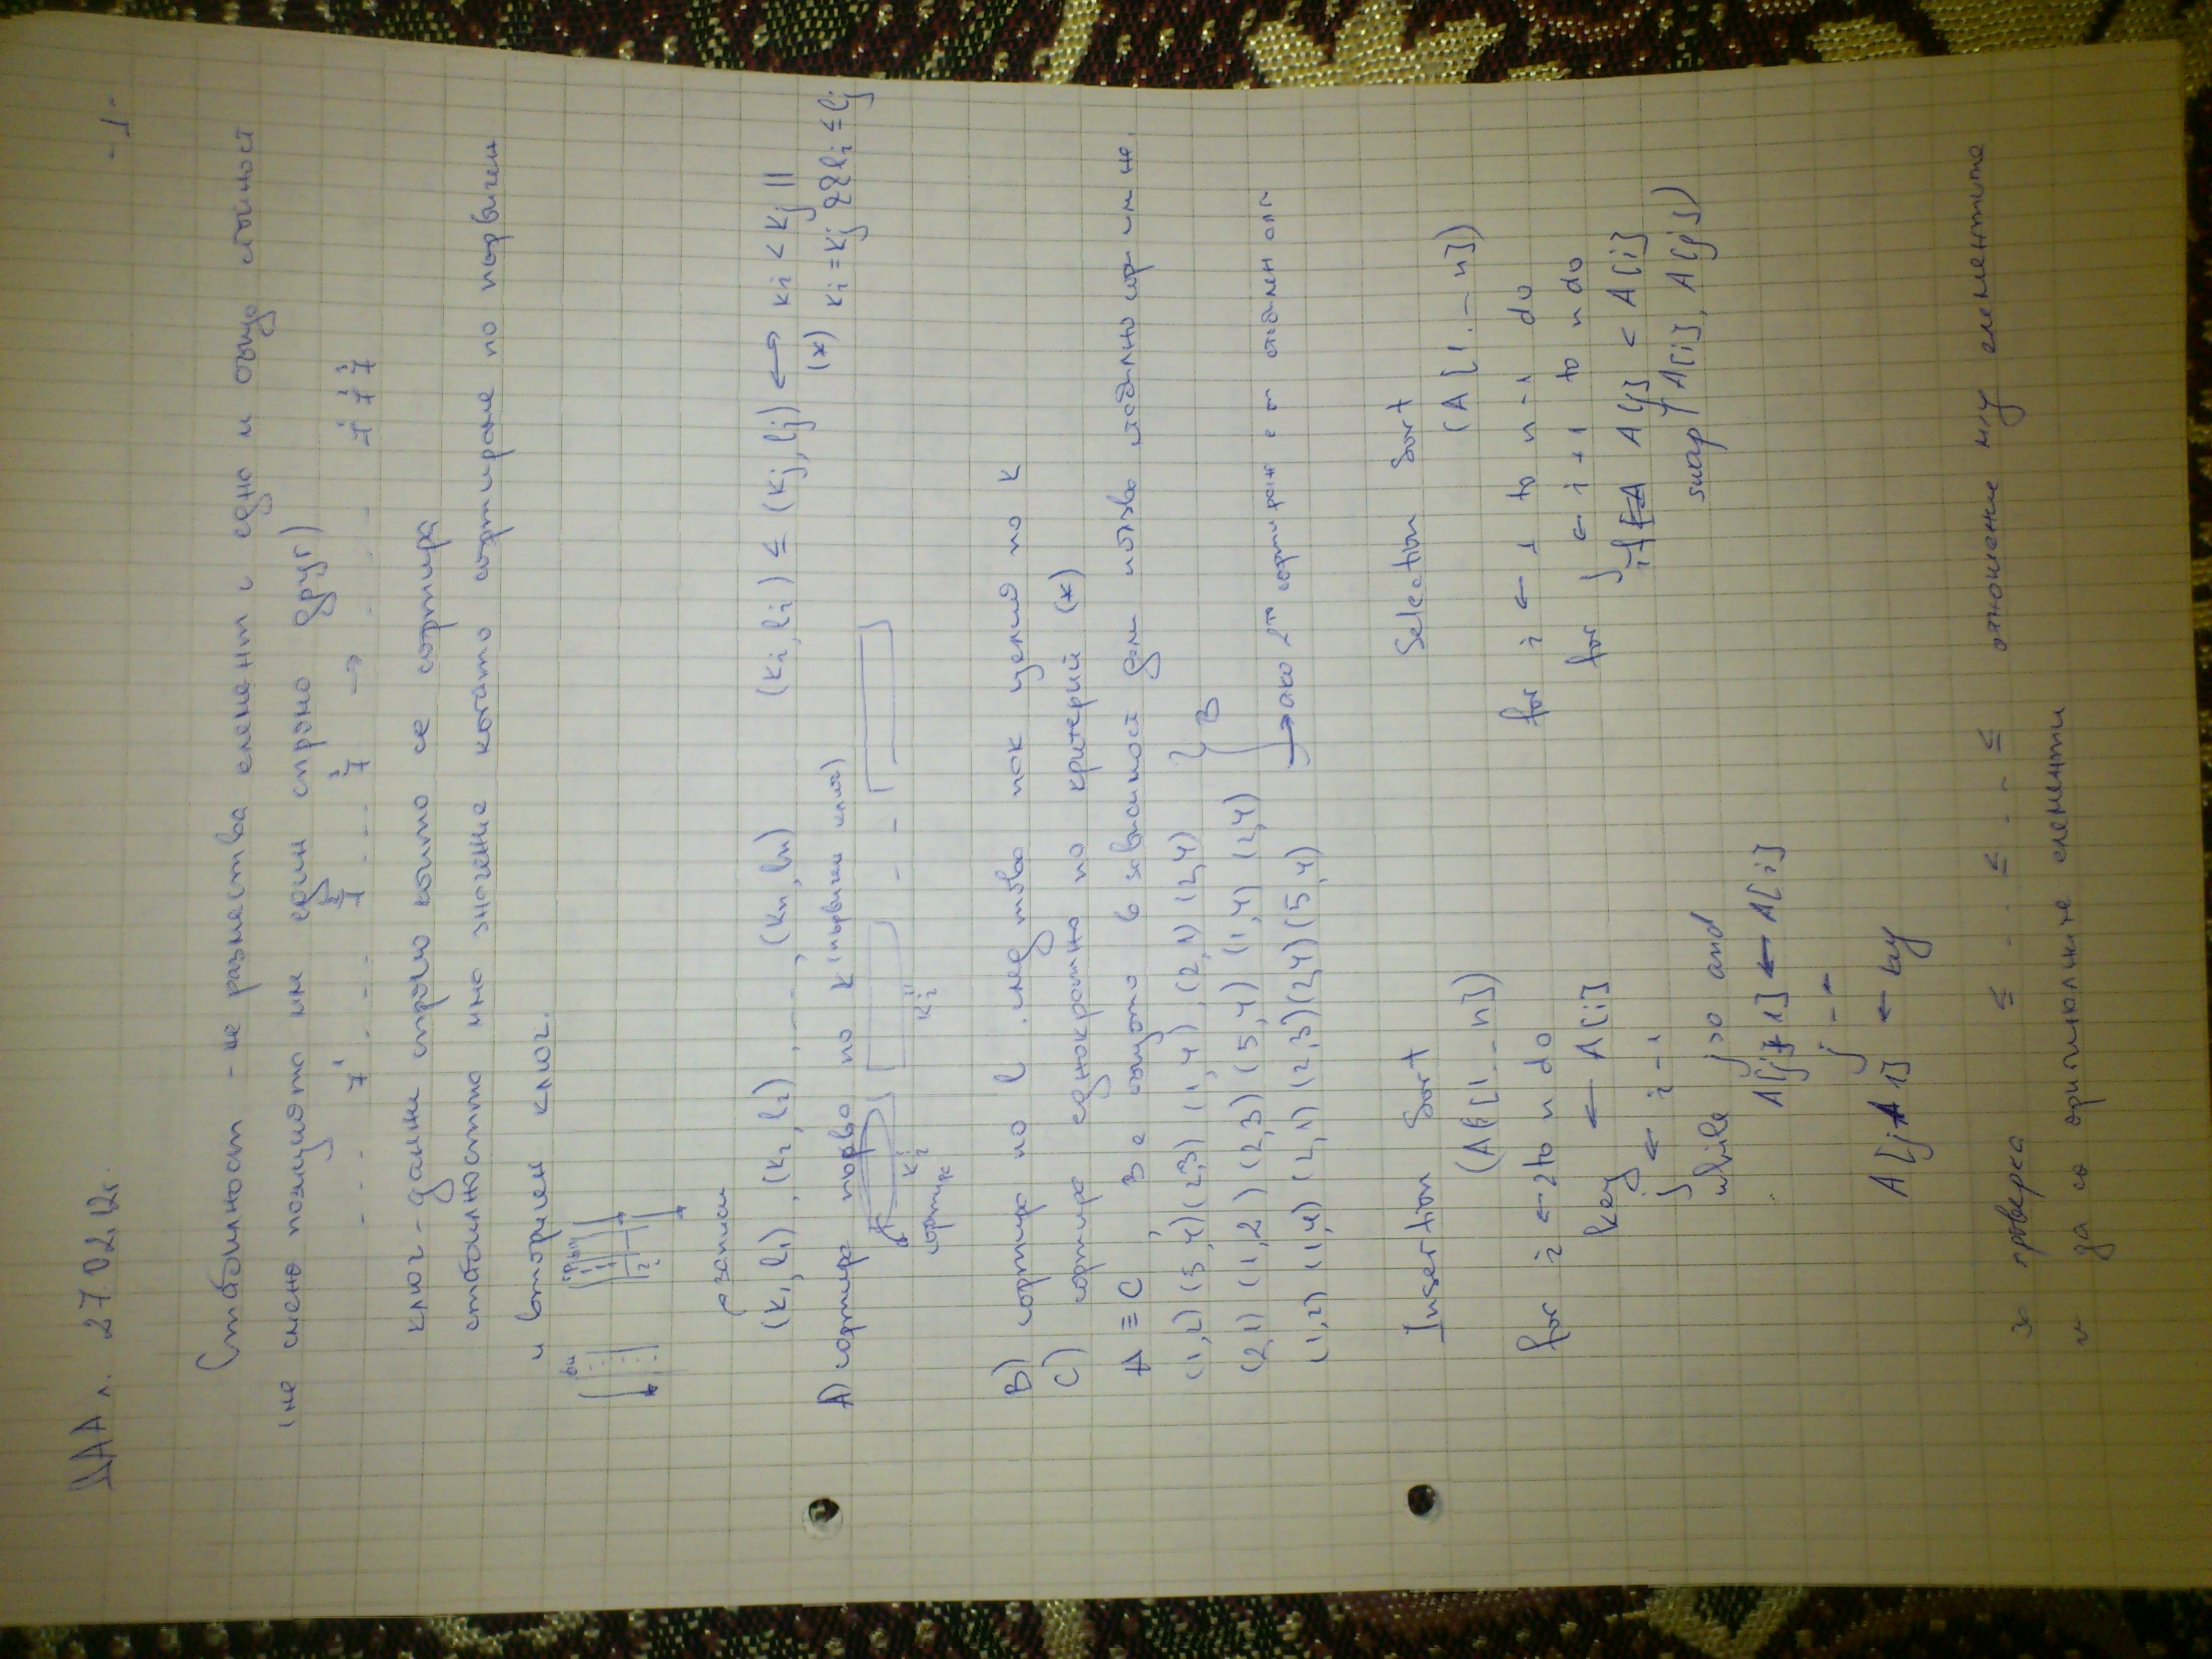 ДАА л. 27.02.12г. -1-
Стабилност - не размества елементи с една и съща стойност
(не сменя позицията им един спрямо друг)
- - - 7¹ - - - 7² - - 7³ → - - - 7¹ 7² 7³
ключ - данни спрямо които се сортира
стабилността има значение когато сортираме по първичен
и вторичен ключ.
записи
(k₁, l₁), (k₂, l₂), ---, (kₙ, lₙ) (kᵢ, lᵢ) ≤ (kⱼ, lⱼ) ↔ kᵢ < kⱼ ||
(*) kᵢ = kⱼ && lᵢ ≤ lⱼ
A) сортира първо по k (първичен ключ)
kᵢ' kᵢ''
сортира
B) сортира по l след това пак цялото по k
C) сортира еднократно по критерий (*)
A ≡ C B е същото в зависимост дали ползва стабилно сор или не.
(1,2) (5,4) (2,3) (1,4), (2,1) (2,4) } B
(2,1) (1,2) (2,3) (5,4) (1,4) (2,4)
(1,2) (1,4) (2,1) (2,3) (2,4) (5,4) → ако 2ᵗᵒ сортиране е от стабилен алг
Insertion Sort
(A[1..n])
for i ← 2 to n do
key ← A[i]
j ← i - 1
while j > 0 and
A[j+1] ← A[i]
j --
A[j+1] ← key
Selection Sort
(A[1..n])
for i ← 1 to n-1 do
for j ← i+1 to n do
if A[j] < A[i]
swap A[i], A[j]
за проверка ≤ - ≤ - - ≤ отношение м/у елементите
и да са оригиналните елементи